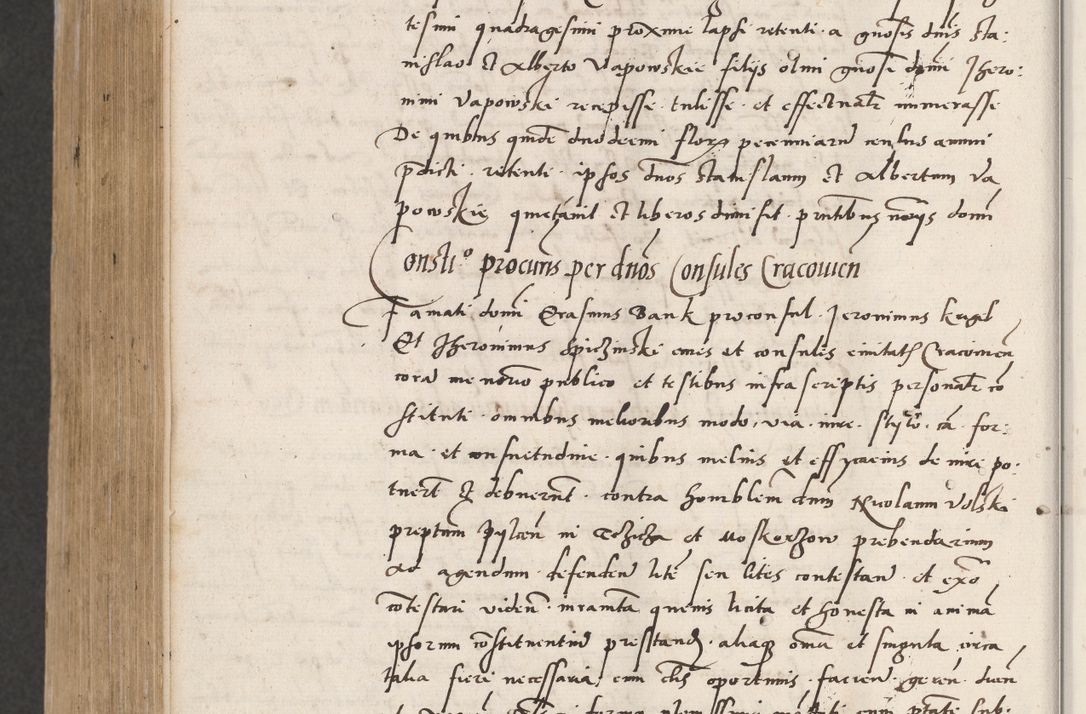 tesimi quadragesimi proxime lapsi retenti a gnosis dnis Sta:
nislao Et Alberto Vapowskie filijs olim gnosi domini Jhero:
nimi Vapowski recepisse tulisse et effectualr numerasse
De quibus quidē duodecim florz pecuniarū census annui
pdicti retenti ipsos dnos Stanislaum Et Albertum Va
powskie quietavit Et liberos dimisit pntibus norijs domi
Constio procuris per dnos Consules Cracouien
Famati domi Erasmus Bank proconsul Jeronimus krigel
Et Jheronimus Spiczinski cives et consules civitatis Cracovien
corā me notario publico et testibus infra scriptis personalr co
stituti omnibus melioribus modo, via iure stylo cā for:
ma et consuetudine quibus melius et efficacius de iure po:
tuert et debuerūt contra honrblem dnum Nicolaum Volski
preptum Pylcen in Tczicza et Moskorzow prebendarium
Ad agendum defendeñ litē seu lites contestañ et exō
cōtestari videñ iuramta quevis licita et honesta in animā
ipsorum cōstituentiū prestand aliaq omā et singula circa
talia fieri necessaria cum clis oportunis facieñ gereñ diceñ